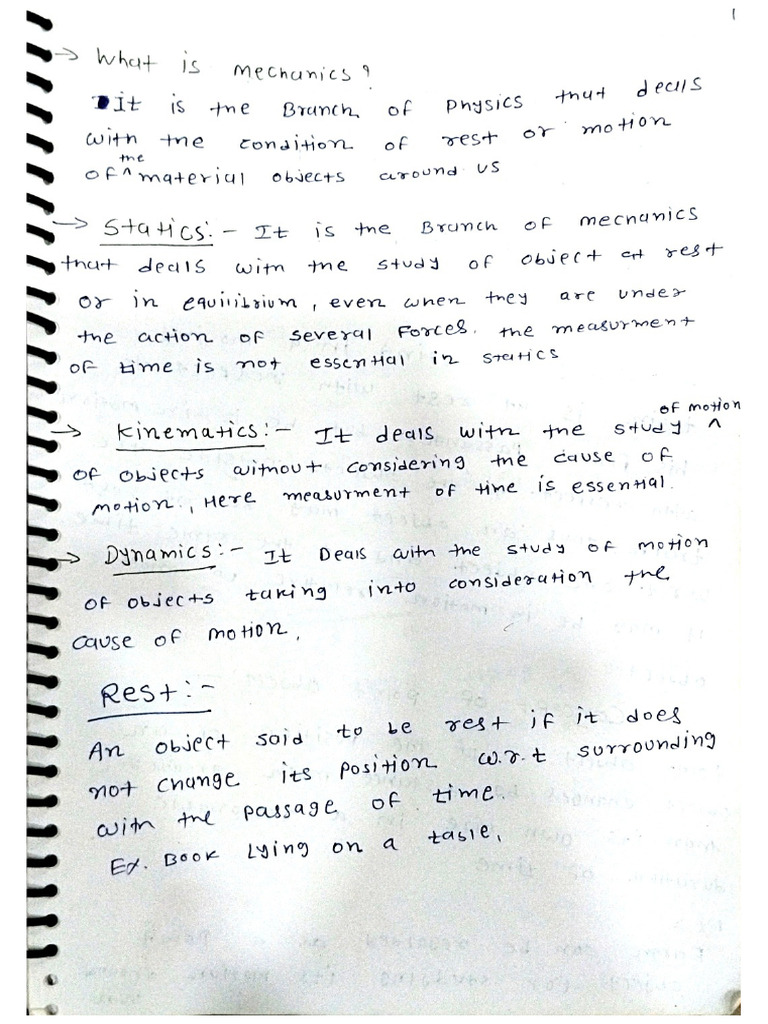 1
→ What is mechanics?
It is the Branch of Physics that deals
with the condition of rest or motion
of ^the material objects around us
→ Statics:- It is the Branch of mechanics
that deals with the study of object at rest
or in equilibrium, even when they are under
the action of several Forces. the measurment
of time is not essential in statics
→ Kinematics:- It deals with the study ^of motion
of objects without considering the cause of
motion, Here measurment of time is essential.
→ Dynamics:- It Deals with the study of motion
of objects taking into consideration the
cause of motion.
Rest:-
An object said to be rest if it does
not change its position w.r.t surrounding
with the passage of time.
Ex. Book Lying on a table.